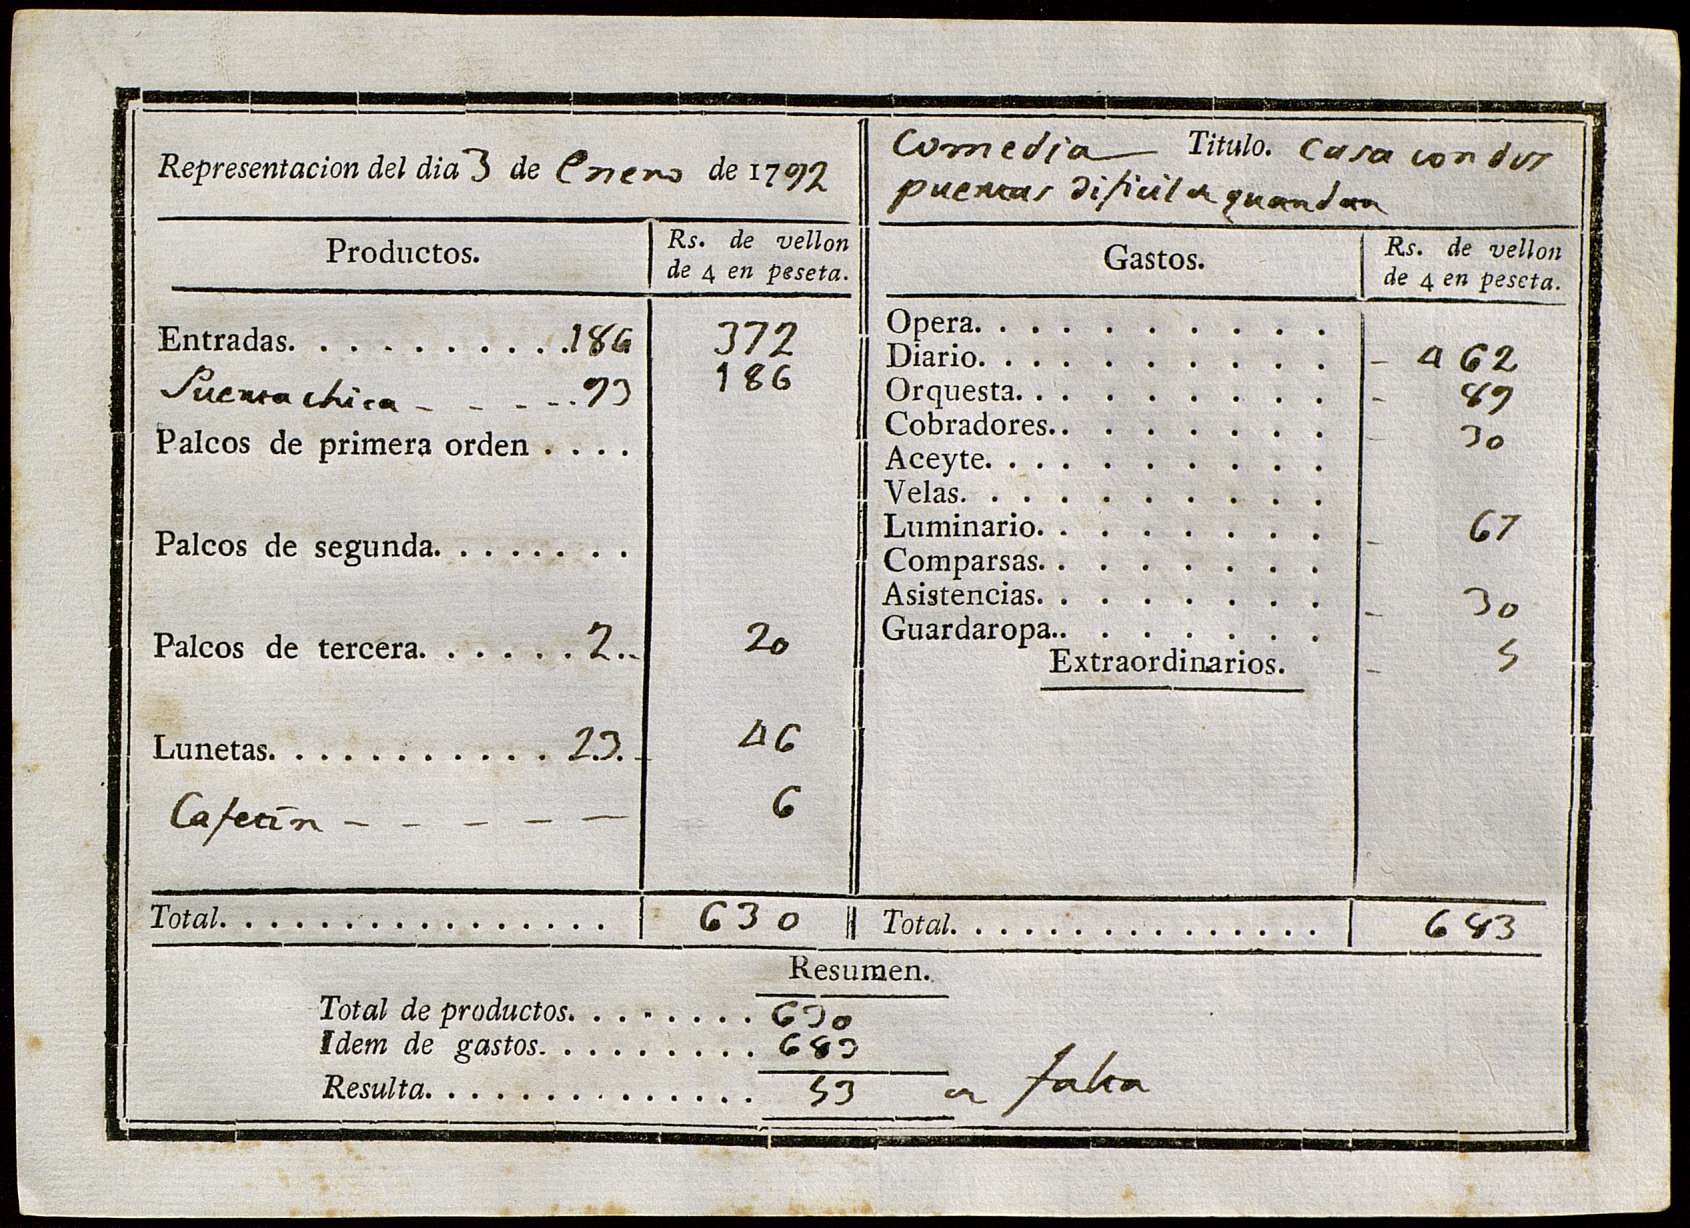 Representacion del dia 3 de Enero de 1792
Productos. Rs. de vellon de 4 en peseta.
Entradas. . . . . . . . . . 186 372
Puerta chica - - - - - 93 186
Palcos de primera orden . . . .
Palcos de segunda. . . . . . . .
Palcos de tercera. . . . . . 2.. 20
Lunetas. . . . . . . . . . . 23. 46
Cafetin - - - - - - 6
Total. . . . . . . . . . . . . . . . 630
Comedia Titulo. Casa con dos
puertas dificil a guardar
Gastos. Rs. de vellon de 4 en peseta.
Opera. . . . . . . . . .
Diario. . . . . . . . . . - 462
Orquesta. . . . . . . . . - 89
Cobradores. . . . . . . . - 30
Aceyte. . . . . . . . . .
Velas. . . . . . . . . .
Luminario. . . . . . . . - 67
Comparsas. . . . . . . .
Asistencias. . . . . . . . - 30
Guardaropa. . . . . . . .
Extraordinarios. - 5
Total. . . . . . . . . . . . . . . 683
Resumen.
Total de productos. . . . . . . . 630
Idem de gastos. . . . . . . . . 683
Resulta. . . . . . . . . . . . . . 53 a falta